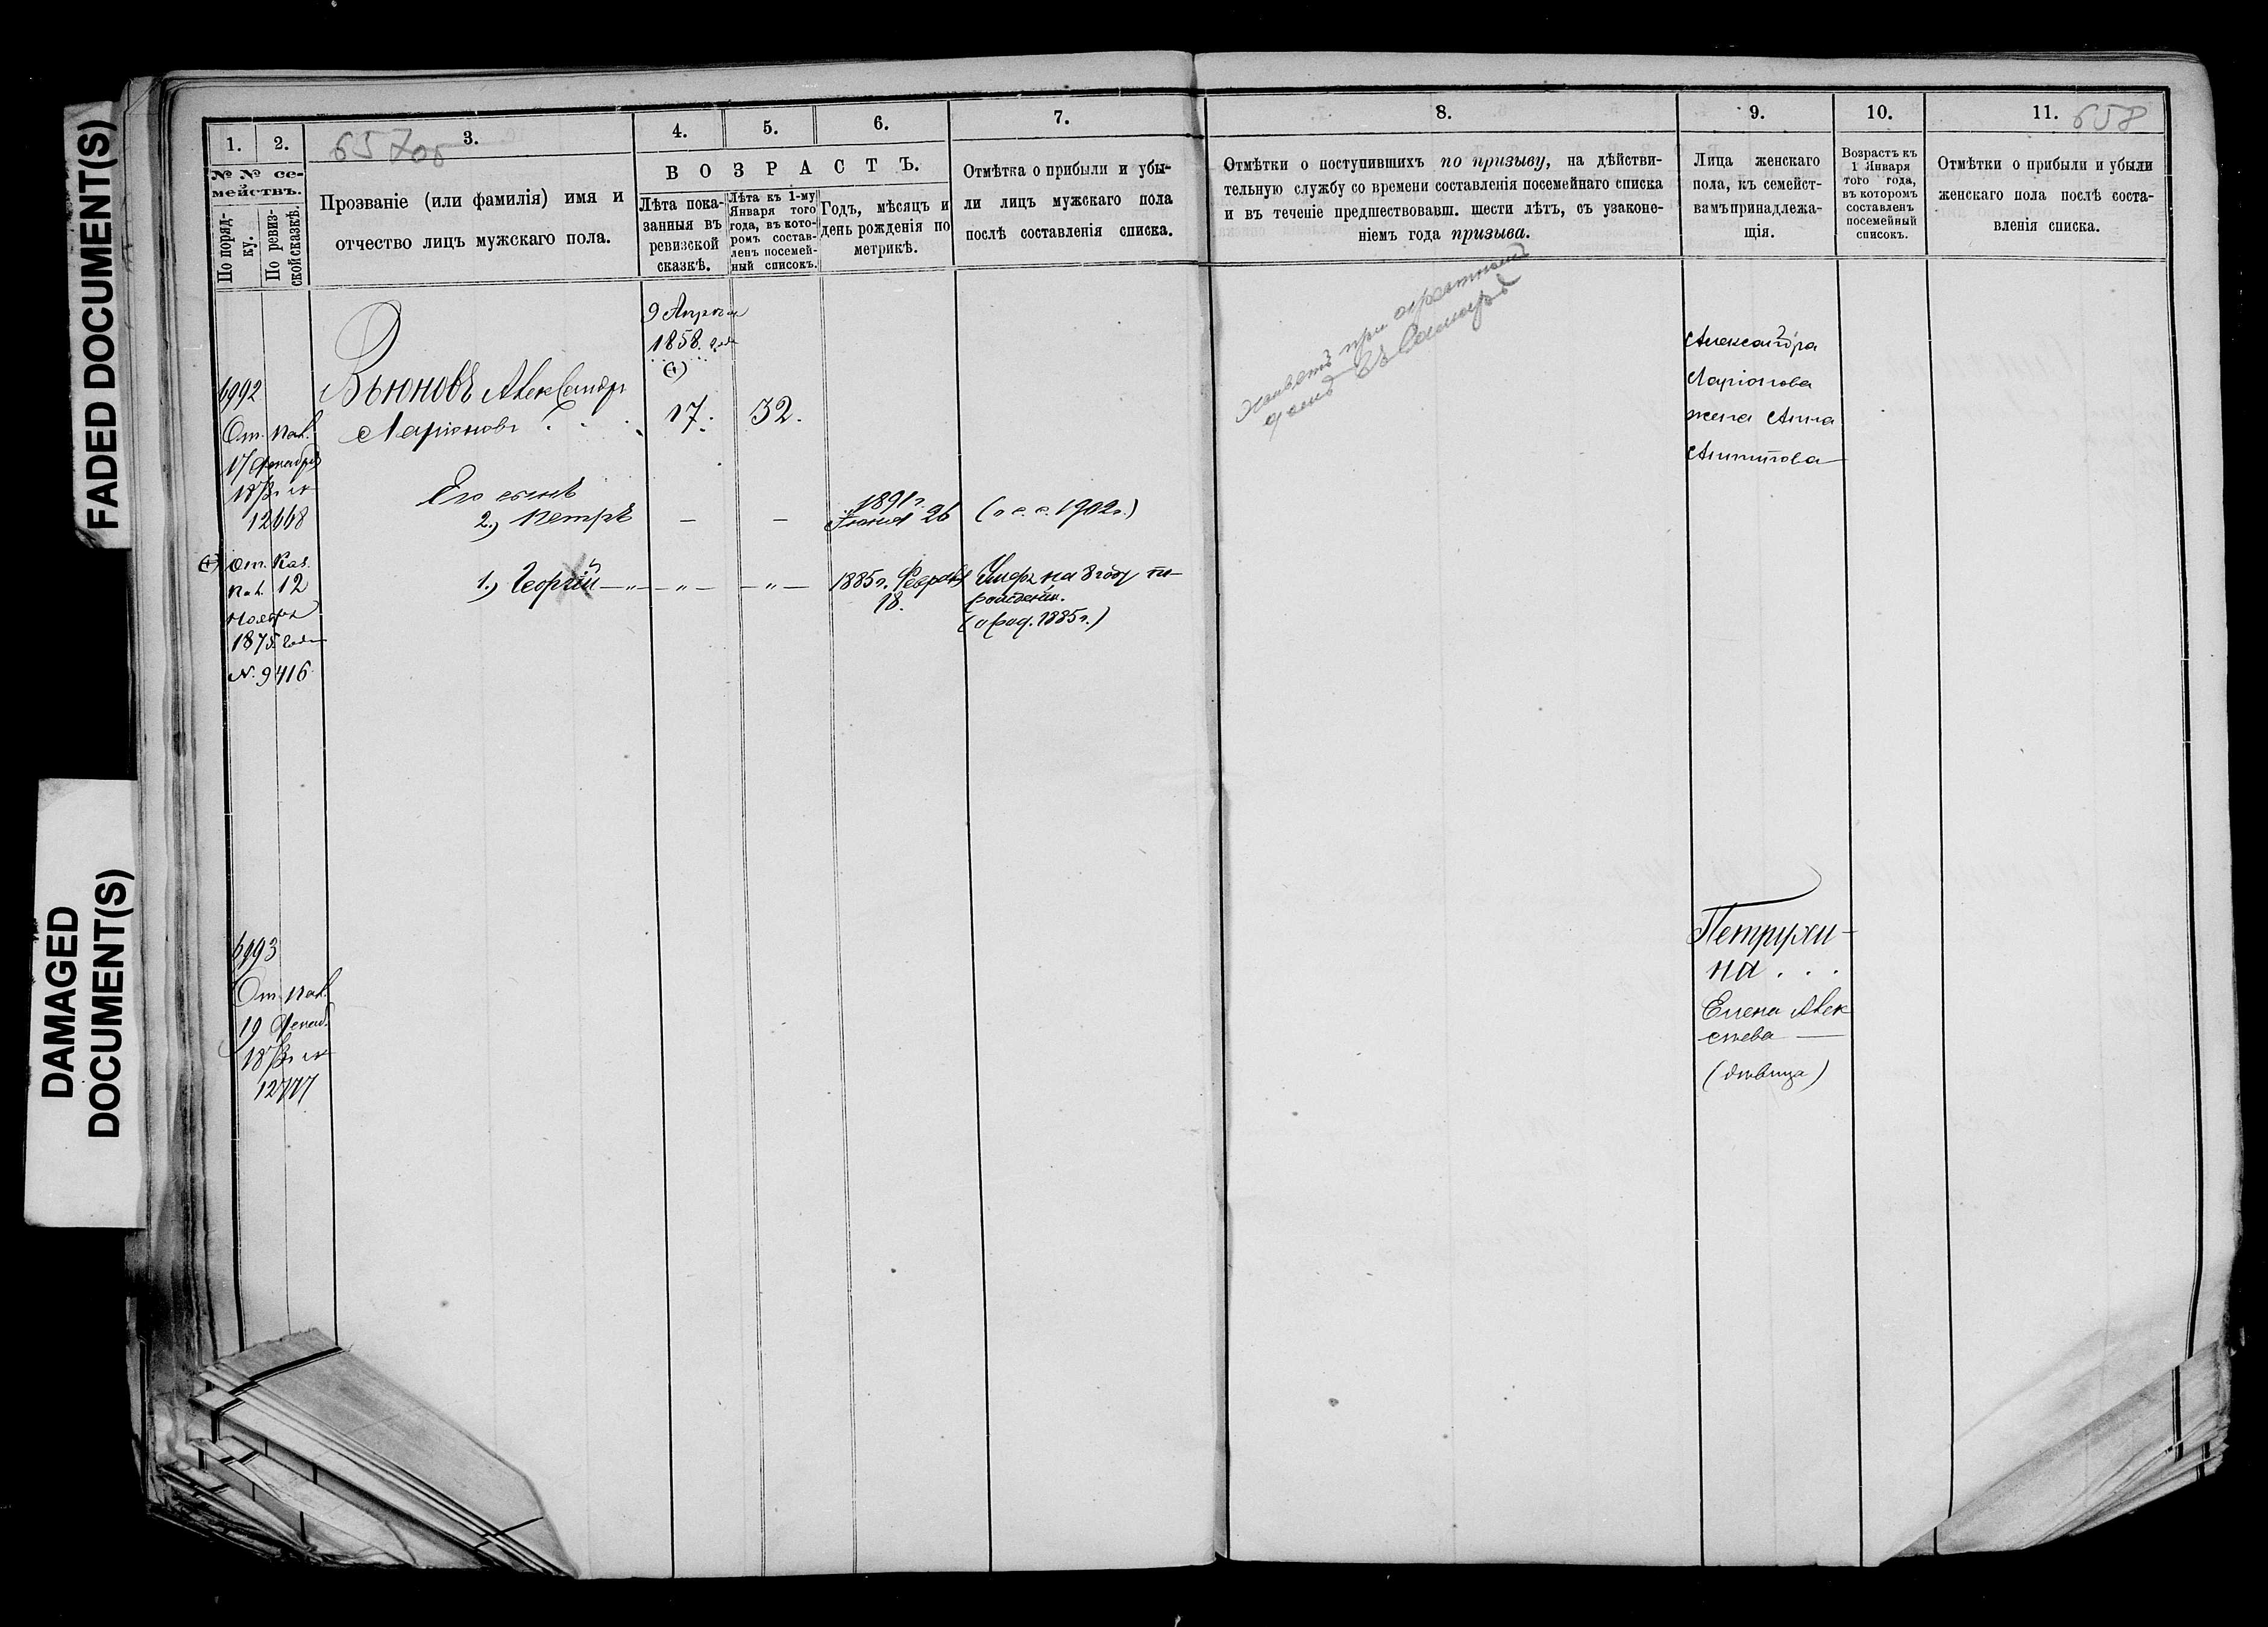 FADED DOCUMENT(S)
DAMAGED
DOCUMENT(S)
1.
2.
3.
4.
5.
6.
7.
8.
9.
10.
11.
658
№ № се-
мействъ.
По поряд-
ку.
По ревиз-
ской сказкѣ.
Прозваніе (или фамилія) имя и
отчество лицъ мужскаго пола.
ВОЗРАСТЪ.
Лѣта пока-
занныя въ
ревизской
сказкѣ.
Лѣта къ 1-му
Января того
года, въ кото-
ромъ состав-
ленъ посемей-
ный списокъ.
Годъ, мѣсяцъ и
день рожденія по
метрикѣ.
Отмѣтка о прибыли и убы-
ли лицъ мужскаго пола
послѣ составленія списка.
Отмѣтки о поступившихъ по призыву, на дѣйстви-
тельную службу со времени составленія посемейнаго списка
и въ теченіе предшествовавш. шести лѣтъ, съ узаконе-
ніемъ года призыва.
Лица женскаго
пола, къ семейст-
вамъ принадлежа-
щія.
Возрастъ къ
1 Января
того года,
въ которомъ
составленъ
посемейный
списокъ.
Отмѣтки о прибыли и убыли
женскаго пола послѣ соста-
вленія списка.
9 Апрѣля
1858 года
(+)
6992
От. Пал.
17 Декабря
12668
Вьюновъ Александръ
Ларіоновъ
17.
32.
Его сынъ
2.) Петръ
— —
1891 г.
Іюня 26
(о с. с. 1902 г.)
(+) От. Каз.
Пал. 12
Ноября
1875 года
№ 9416
1.) Георгій — „ — „ — — „ —
1885 г. Февраля
18.
Умеръ на 8 году по
рожденіи.
(о род. 1885 г.)
Живетъ при
домѣ въ Самарѣ
Александра
Ларіонова
жена Анна
6993
От. Пал.
19 Декаб.
12777
Петрухи-
на . . .
Елена Алек
сѣева —
(дѣвица)